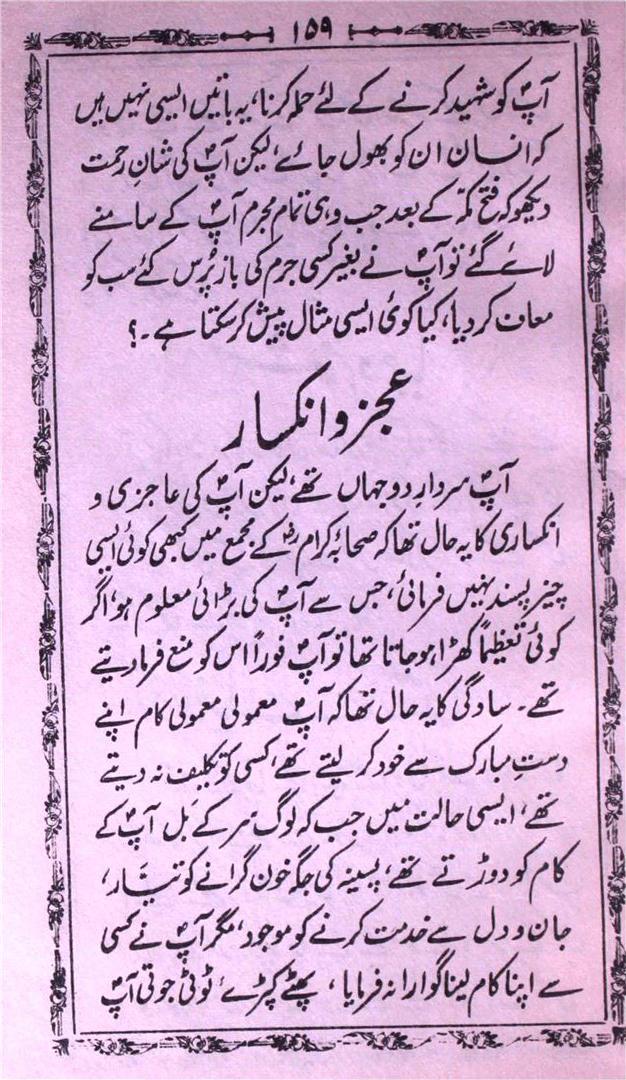 ۱۵۹
آپؐ کو شہید کرنے کے لئے حملہ کرنا، یہ باتیں ایسی نہیں ہیں
کہ انسان ان کو بھول جائے، لیکن آپؐ کی شانِ رحمت
دیکھو کہ فتح مکّہ کے بعد جب وہی تمام مجرم آپؐ کے سامنے
لائے گئے تو آپؐ نے بغیر کسی جرم کی باز پُرس کئے سب کو
معاف کر دیا، کیا کوئی ایسی مثال پیش کر سکتا ہے ۔؟
عجز و انکسار
آپؐ سردارِ دو جہاں تھے، لیکن آپؐ کی عاجزی و
انکساری کا یہ حال تھا کہ صحابۂ کرامؓ کے مجمع میں کبھی کوئی ایسی
چیز پسند نہیں فرمائی، جس سے آپؐ کی بڑائی معلوم ہو، اگر
کوئی تعظیماً کھڑا ہو جاتا تھا تو آپؐ فوراً اس کو منع فرما دیتے
تھے ۔ سادگی کا یہ حال تھا کہ آپؐ معمولی معمولی کام اپنے
دستِ مبارک سے خود کر لیتے تھے، کسی کو تکلیف نہ دیتے
تھے، ایسی حالت میں جب کہ لوگ سَر کے بَل آپؐ کے
کام کو دوڑتے تھے، پسینہ کی جگہ خون گرانے کو تیّار،
جان و دل سے خدمت کرنے کو موجود، مگر آپؐ نے کسی
سے اپنا کام لینا گوارا نہ فرمایا، پھٹے کپڑے، ٹوٹی جوتی آپؐ